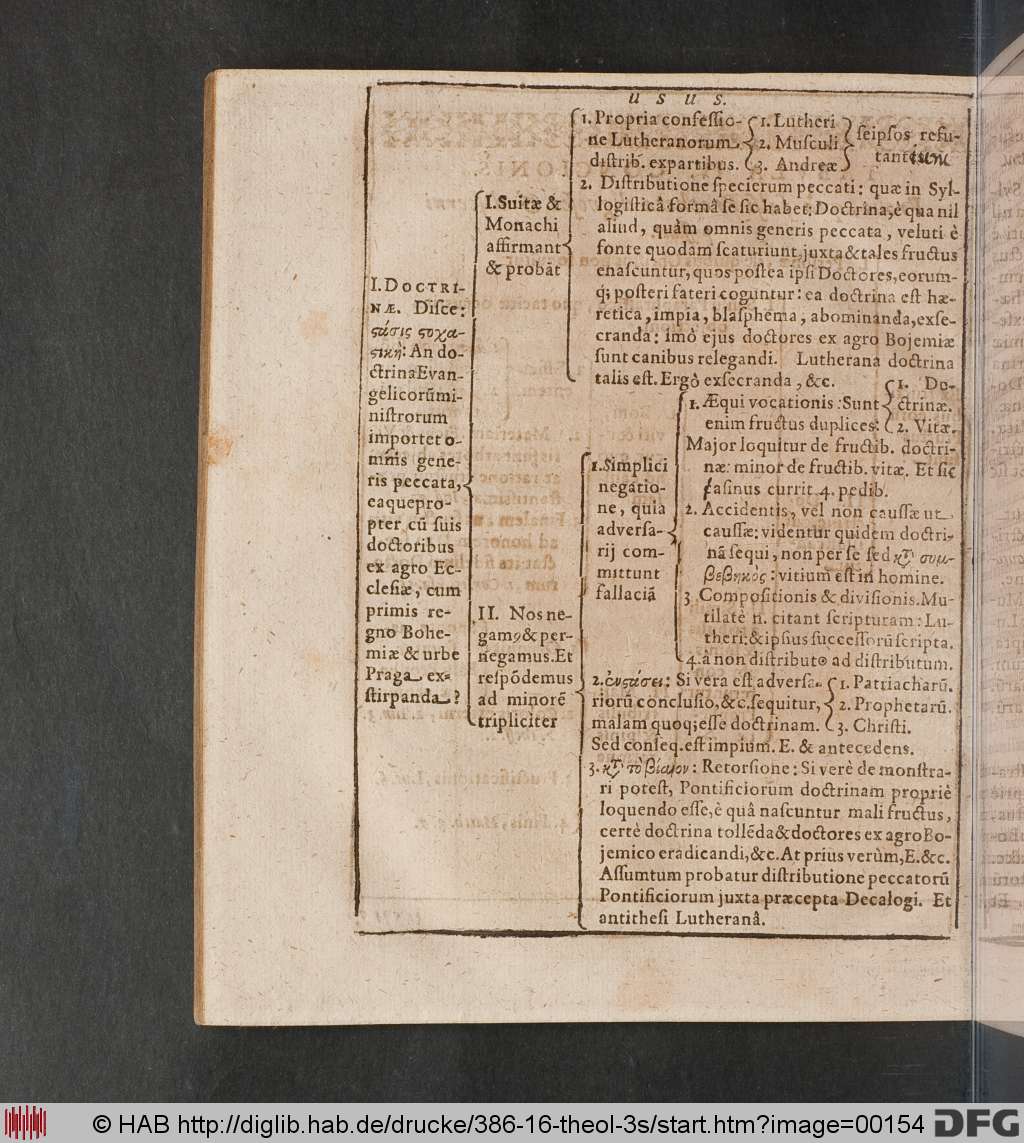 U S U S.
I. DOCTRI-
NÆ. Disce:
ϛάσις ϛοχα-
ϛικὴ: An do-
ctrina Evan-
gelicorū mi-
nistrorum
importet o-
mnis gene-
ris peccata,
eaque pro-
pter cū suis
doctoribus
ex agro Ec-
clesiæ, cum
primis re-
gno Bohe-
miæ & urbe
Praga ex-
stirpanda?
I. Suitæ &
Monachi
affirmant
& probāt
1. Propria confessio-
ne Lutheranorum
distrib. ex partibus.
1. Lutheri
2. Musculi
3. Andreæ
seipsos refu-
tant
2. Distributione specierum peccati: quæ in Syl-
logisticâ formâ se sic habet: Doctrina, è qua nil
aliud, quàm omnis generis peccata, veluti è
fonte quodam scaturiunt, juxta & tales fructus
enascuntur, quos postea ipsi Doctores, eorum-
q; posteri fateri coguntur: ea doctrina est hæ-
retica, impia, blasphema, abominanda, exse-
cranda: imò ejus doctores ex agro Bojemiæ
sunt canibus relegandi. Lutherana doctrina
talis est. Ergò exsecranda, &c.
II. Nos ne-
gamꝰ & per-
negamus. Et
respōdemus
ad minorē
tripliciter
1. Simplici
negatio-
ne, quia
adversa-
rij com-
mittunt
fallaciā
1. Æqui vocationis: Sunt
enim fructus duplices:
1. Do-
ctrinæ.
2. Vitæ.
Major loquitur de fructib. doctri-
næ: minor de fructib. vitæ. Et sic
asinus currit 4. pedib.
2. Accidentis, vel non caussæ ut
caussæ: videntur quidem doctri-
nā sequi, non per se sed κτ̀ συμ-
βεβηκὸς: vitium est in homine.
3. Compositionis & divisionis. Mu-
tilatè n. citant scripturam: Lu-
theri: & ipsius successorū scripta.
4. à non distributo ad distributum.
2. ἐνϛάσει: Si vera est adversa-
riorū conclusio, &c. sequitur,
malam quoq; esse doctrinam.
1. Patriacharū.
2. Prophetarū.
3. Christi.
Sed conseq. est impium. E. & antecedens.
3. κτ̀ τὸ βίαιον: Retorsione: Si verè demonstra-
ri potest, Pontificiorum doctrinam propriè
loquendo esse, è quâ nascuntur mali fructus,
certè doctrina tollēda & doctores ex agro Bo-
jemico eradicandi, &c. At prius verùm, E. &c.
Assumtum probatur distributione peccatorū
Pontificiorum juxta præcepta Decalogi. Et
antithesi Lutheranâ.
© HAB http://diglib.hab.de/drucke/386-16-theol-3s/start.htm?image=00154 DFG